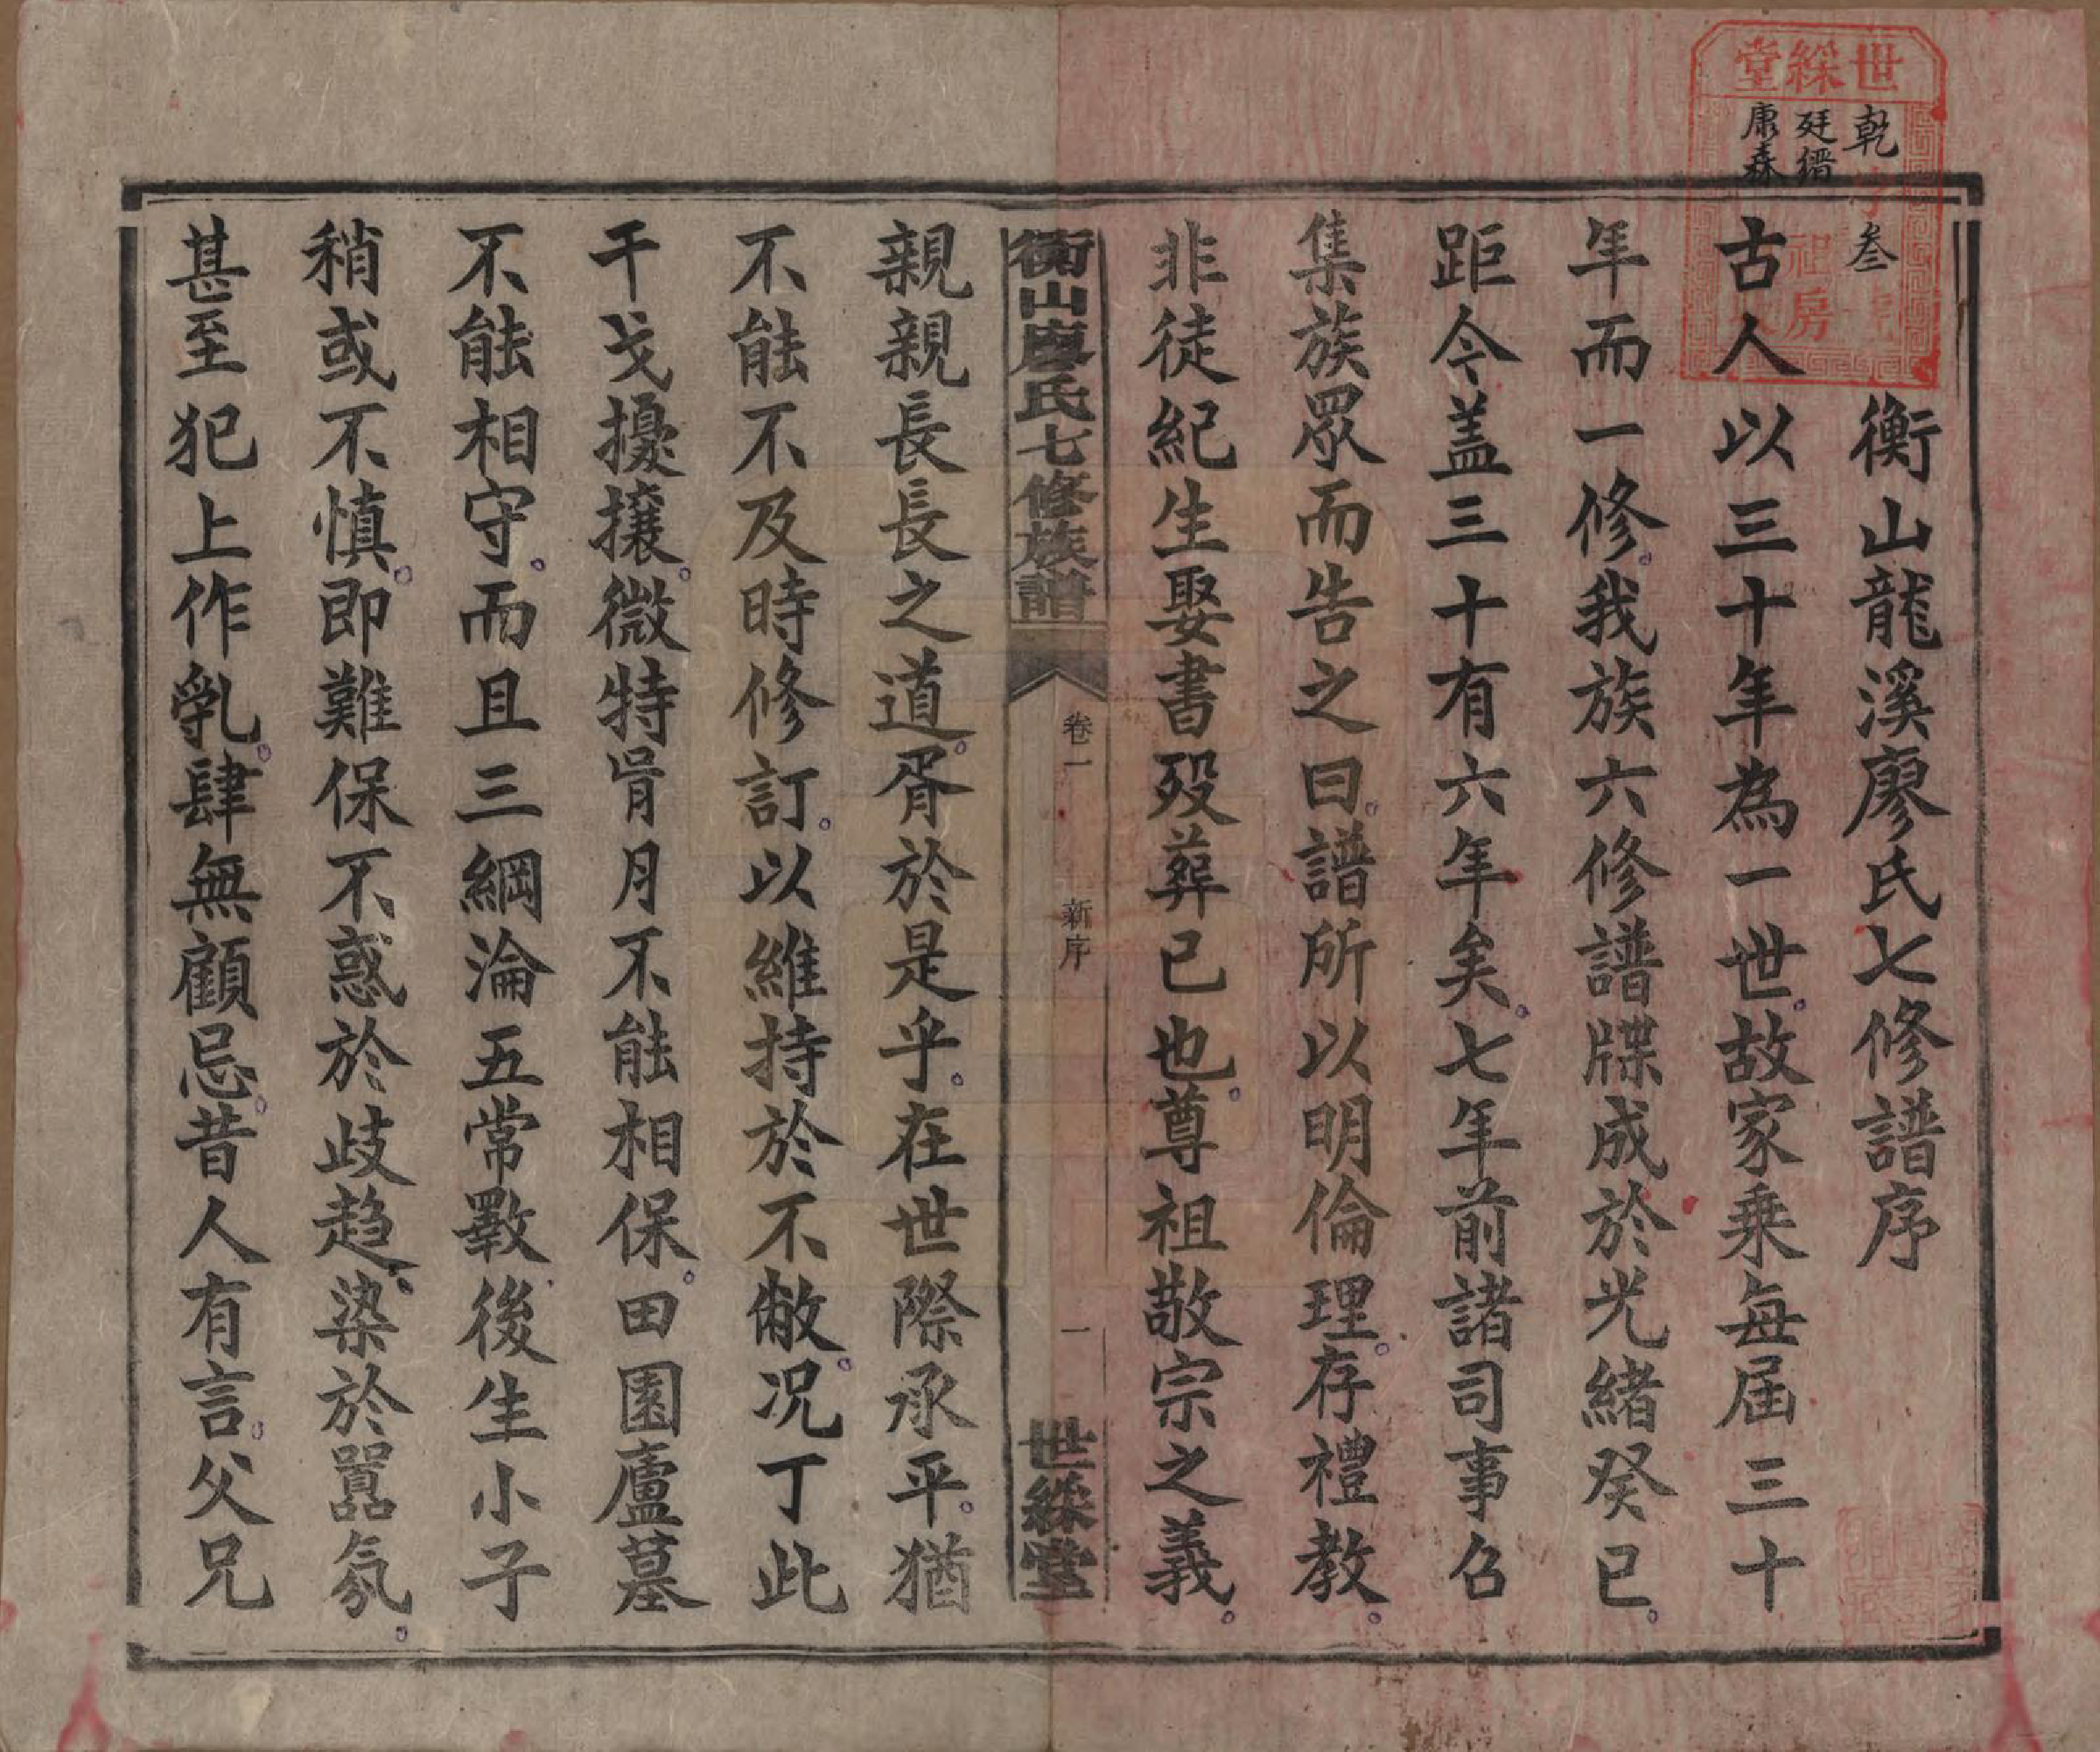 世綵堂
乾字叁號
廷縉
康森
祖房
衡山龍溪廖氏七修譜序
古人以三十年為一世故家乘每屆三十
年而一修我族六修譜牒成於光緒癸巳
距今盖三十有六年矣七年前諸司事召
集族眾而告之曰譜所以明倫理存禮教
非徒紀生娶書歿葬已也尊祖敬宗之義
衡山廖氏七修族譜
卷一
新序
一
世綵堂
親親長長之道胥於是乎在世際承平猶
不能不及時修訂以維持於不敝况丁此
干戈擾攘微特骨月不能相保田園廬墓
不能相守而且三綱淪五常斁後生小子
稍或不慎即難保不惑於歧趋染於囂氛
甚至犯上作乱肆無顧忌昔人有言父兄